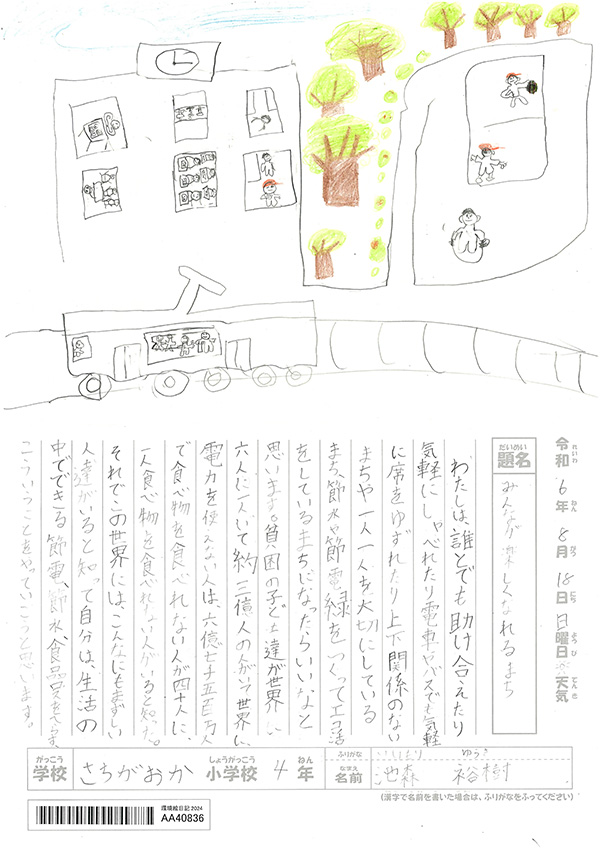 令和 6年 8月 18日 日曜日 天気
れいわ ねん がつ にち ようび てんき
だいめい
題名
みんなが楽しくなれるまち
わたしは、誰とでも助け合えたり
気軽にしゃべれたり電車やバスでも気軽
に席をゆずれたり上下関係のない
まちや一人一人を大切にしている
まち、節水や節電、緑をつくってエコ活
をしているまちになったらいいなと
思います。貧困の子ども達が世界に
六人に一人いて約三億人の人がいて世界に
電力を使えない人は、六億七千五百万人
で食べ物を食べれない人が四十人に
一人食べ物を食べれない人がいると知った。
それでこの世界には、こんなにもまずしい
人達がいると知って自分は、生活の
中でできる節電、節水、食品ロスをへらす
こういうことをやっていこうと思います。
がっこう
学校
さちがおか
しょうがっこう
小学校
4
ねん
年
ふりがな
なまえ
名前
いけもり ゆうき
池森 裕樹
(漢字で名前を書いた場合は、ふりがなをふってください)
環境絵日記2024
AA40836